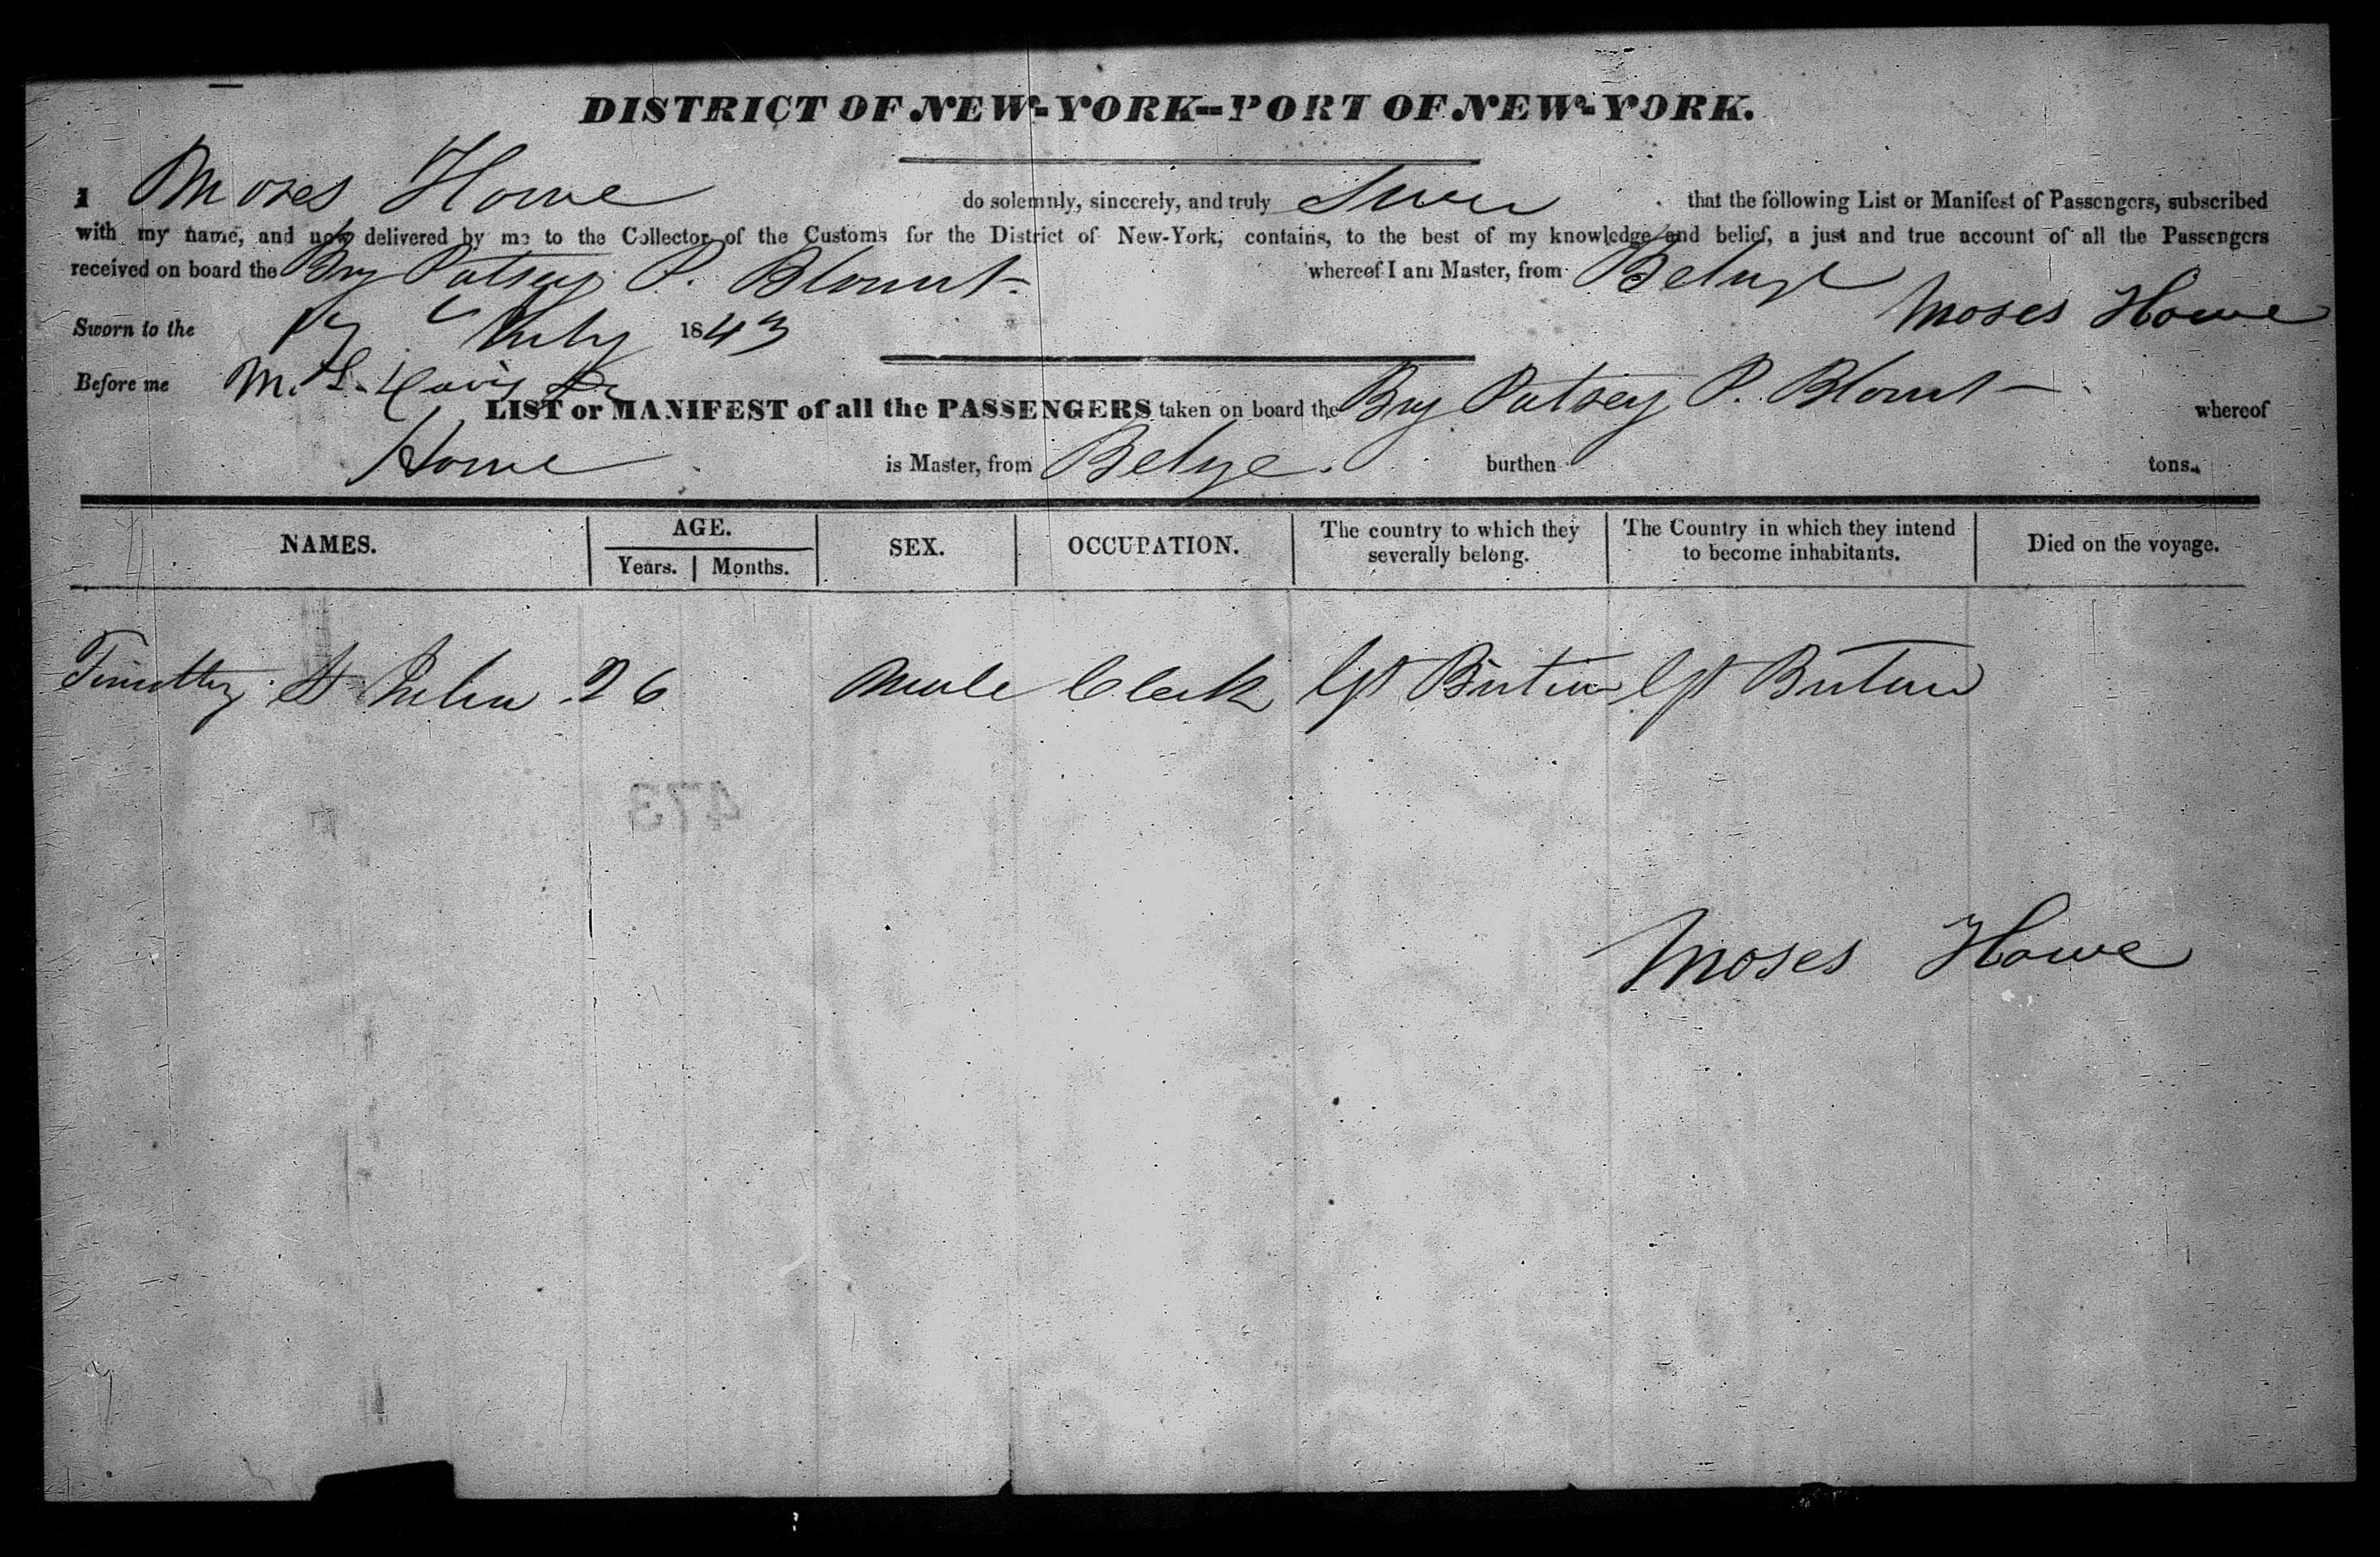 DISTRICT OF NEW-YORK--PORT OF NEW-YORK.
I Moses Howe do solemnly, sincerely, and truly Swear that the following List or Manifest of Passengers, subscribed
with my name, and now delivered by me to the Collector of the Customs for the District of New-York, contains, to the best of my knowledge and belief, a just and true account of all the Passengers
received on board the Brg Patsey P. Blount whereof I am Master, from Belize
Moses Howe
Sworn to the July 1843
Before me M. L. Davis
LIST or MANIFEST of all the PASSENGERS taken on board the Brg Patsey P. Blount whereof
Howe is Master, from Belize burthen tons.
NAMES. AGE. Years. Months. SEX. OCCUPATION. The country to which they severally belong. The Country in which they intend to become inhabitants. Died on the voyage.
Timothy St 26 Male Clerk Gt Britain Gt Britain
473
Moses Howe